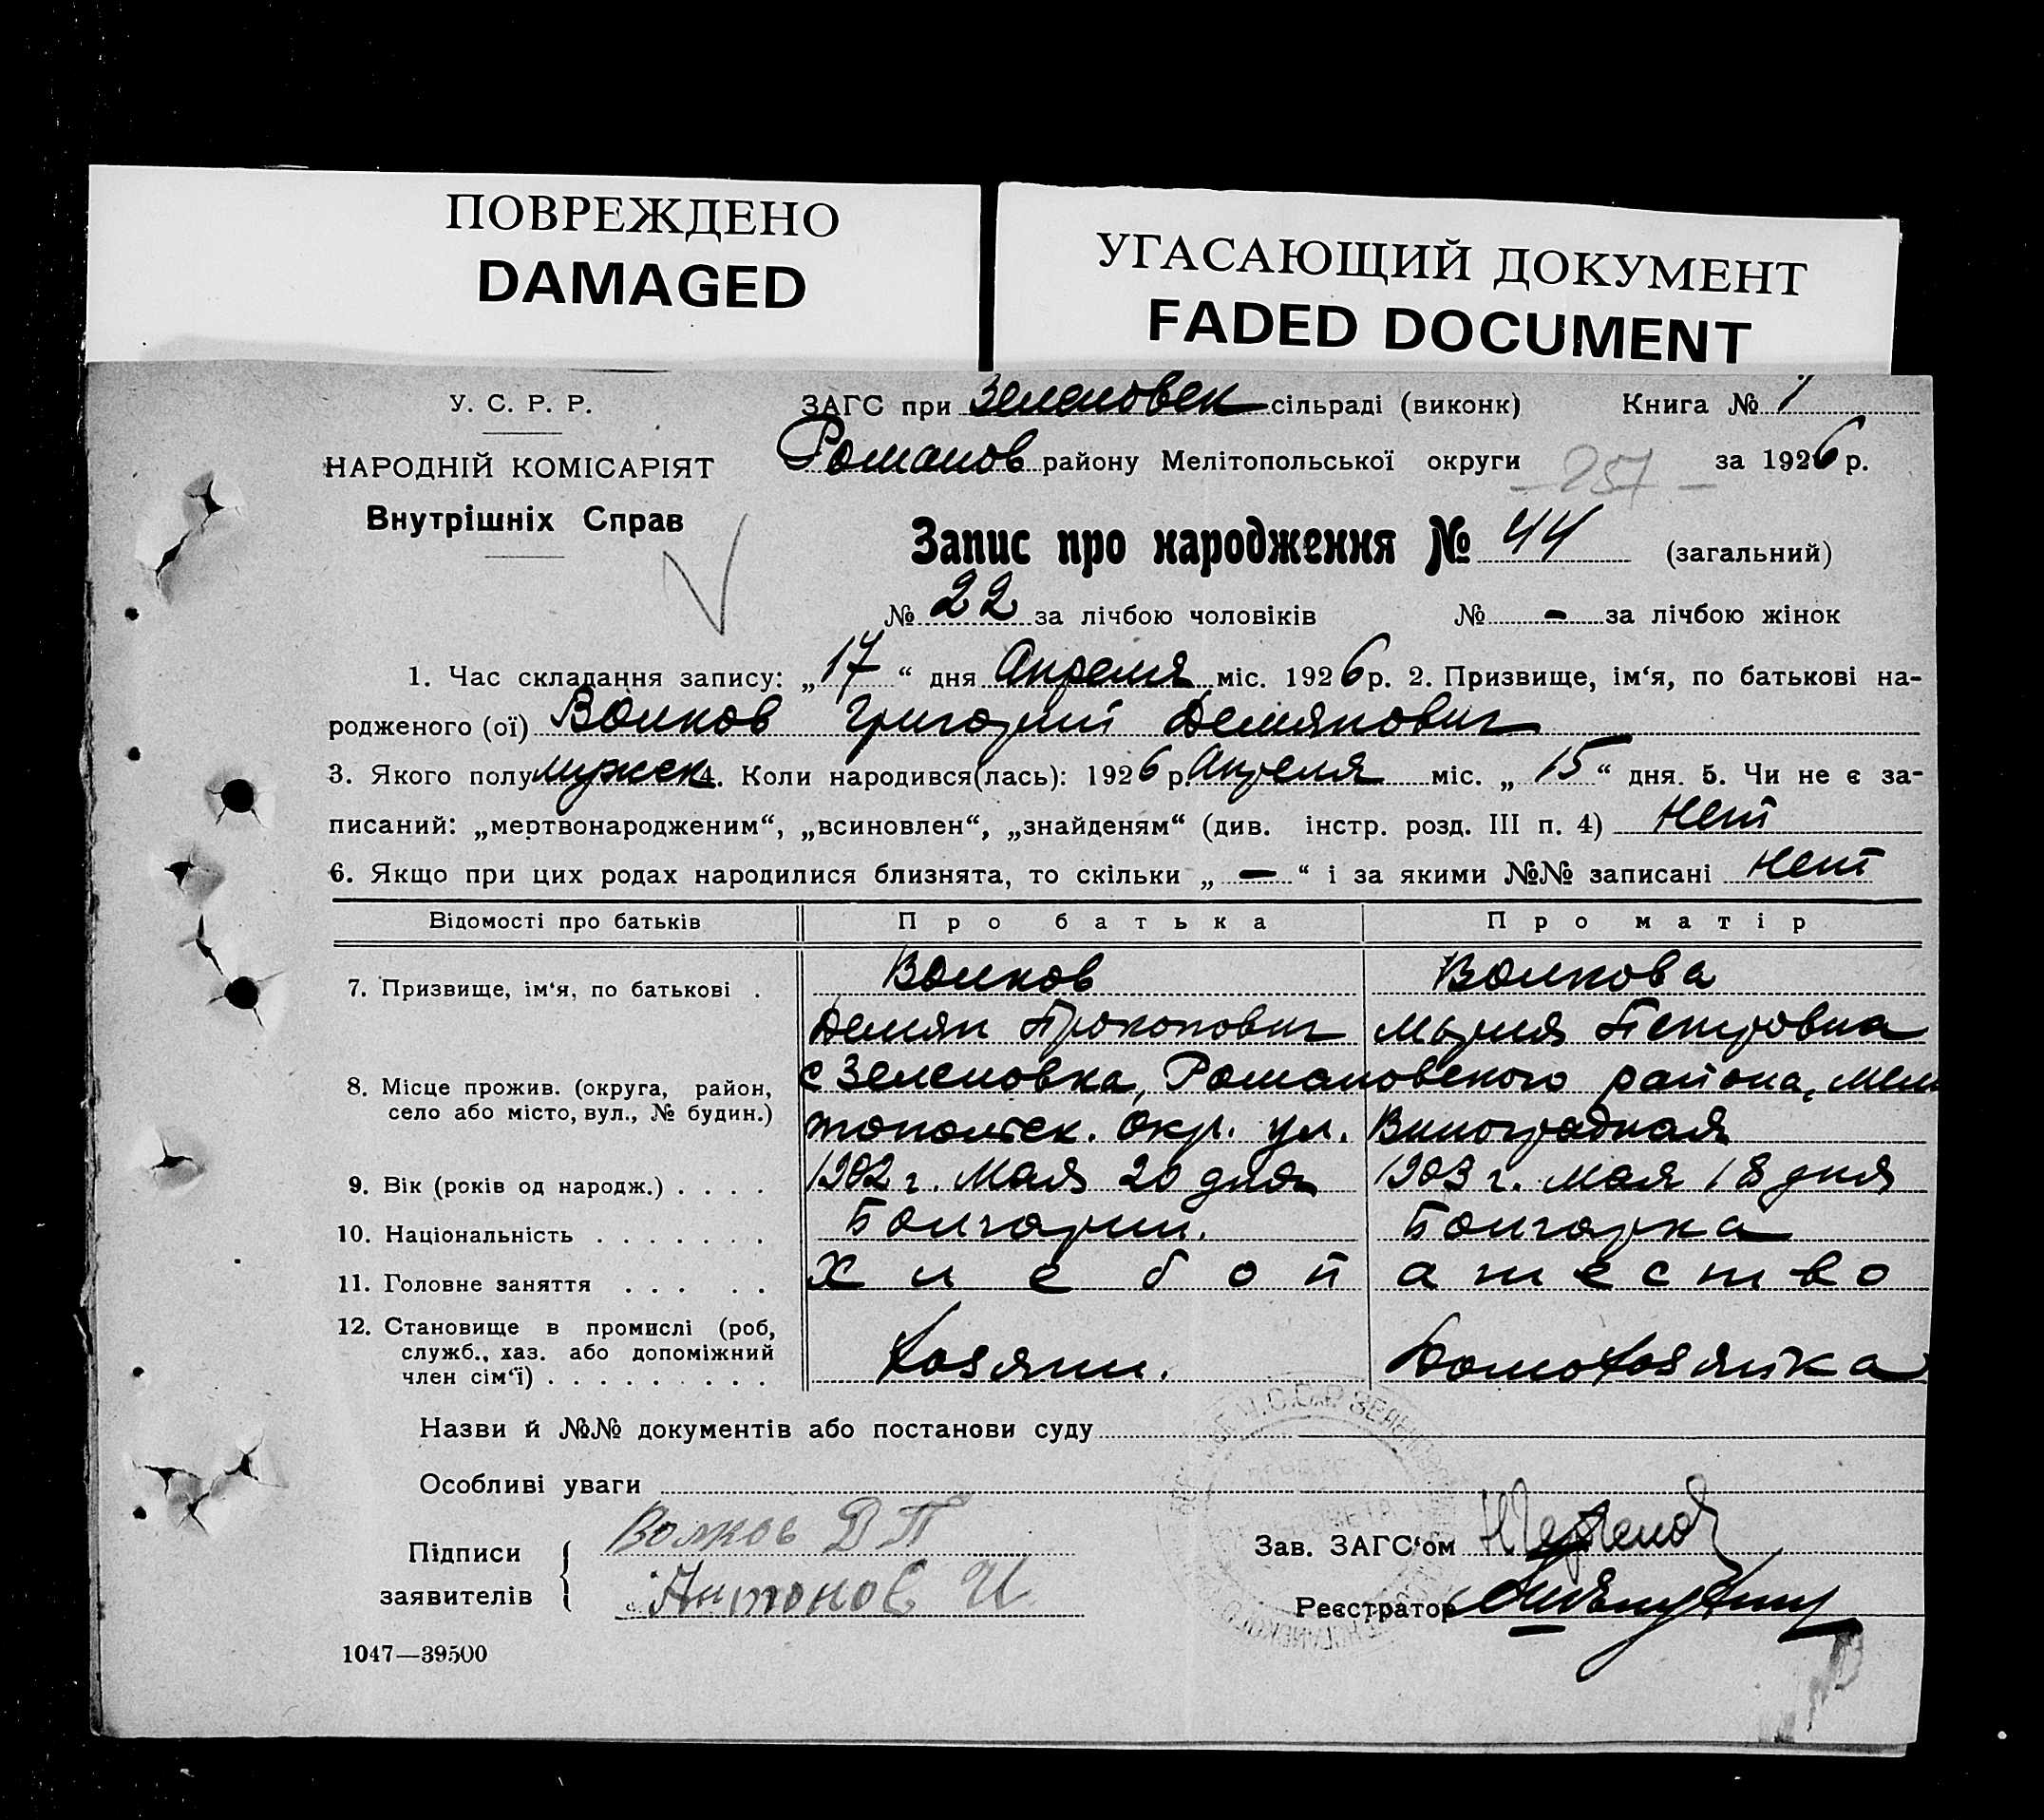 ПОВРЕЖДЕНО
DAMAGED
УГАСАЮЩИЙ ДОКУМЕНТ
FADED DOCUMENT
У. С. Р. Р.
НАРОДНІЙ КОМІСАРІЯТ
Внутрішніх Справ
ЗАГС при Зеленовск сільраді (виконк) Книга № 1
Романов району Мелітопольської округи – 257 – за 1926 р.
Запис про народження № 44 (загальний)
№ 22 за лічбою чоловіків № – за лічбою жінок
1. Час складання запису: „17“ дня Апреля міс. 1926 р. 2. Призвище, ім‘я, по батькові на-
родженого (ої) Волков Григорий Демянович
3. Якого полу мужск 4. Коли народився(лась): 1926 р. Апреля міс. „15“ дня. 5. Чи не є за-
писаний: „мертвонародженим“, „всиновлен“, „знайденям“ (див. інстр. розд. III п. 4) Нет
6. Якщо при цих родах народилися близнята, то скільки „ – “ і за якими №№ записані Нет
Відомості про батьків Про батька Про матір
7. Призвище, ім‘я, по батькові . Волков Волкова
Демян Прокопович Мария Петровна
8. Місце прожив. (округа, район, с Зеленовка, Романовского района, Мели
село або місто, вул., № будин.) топольск. Окр. ул. Виноградная
9. Вік (років од народж.) . . . . 1902 г. Мая 20 дня 1903 г. мая 18 дня
10. Національність . . . . . . . Болгарин. Болгарка
11. Головне заняття . . . . . Хлебопашество
12. Становище в промислі (роб,
служб., хаз. або допоміжний
член сім‘ї) . . . . . . . . . Хозяин. Домохозяйка
Назви й №№ документів або постанови суду
Особливі уваги
Підписи
заявителів
Волков Д П
Антонов И
Зав. ЗАГС‘ом
Реєстратор
1047—39500